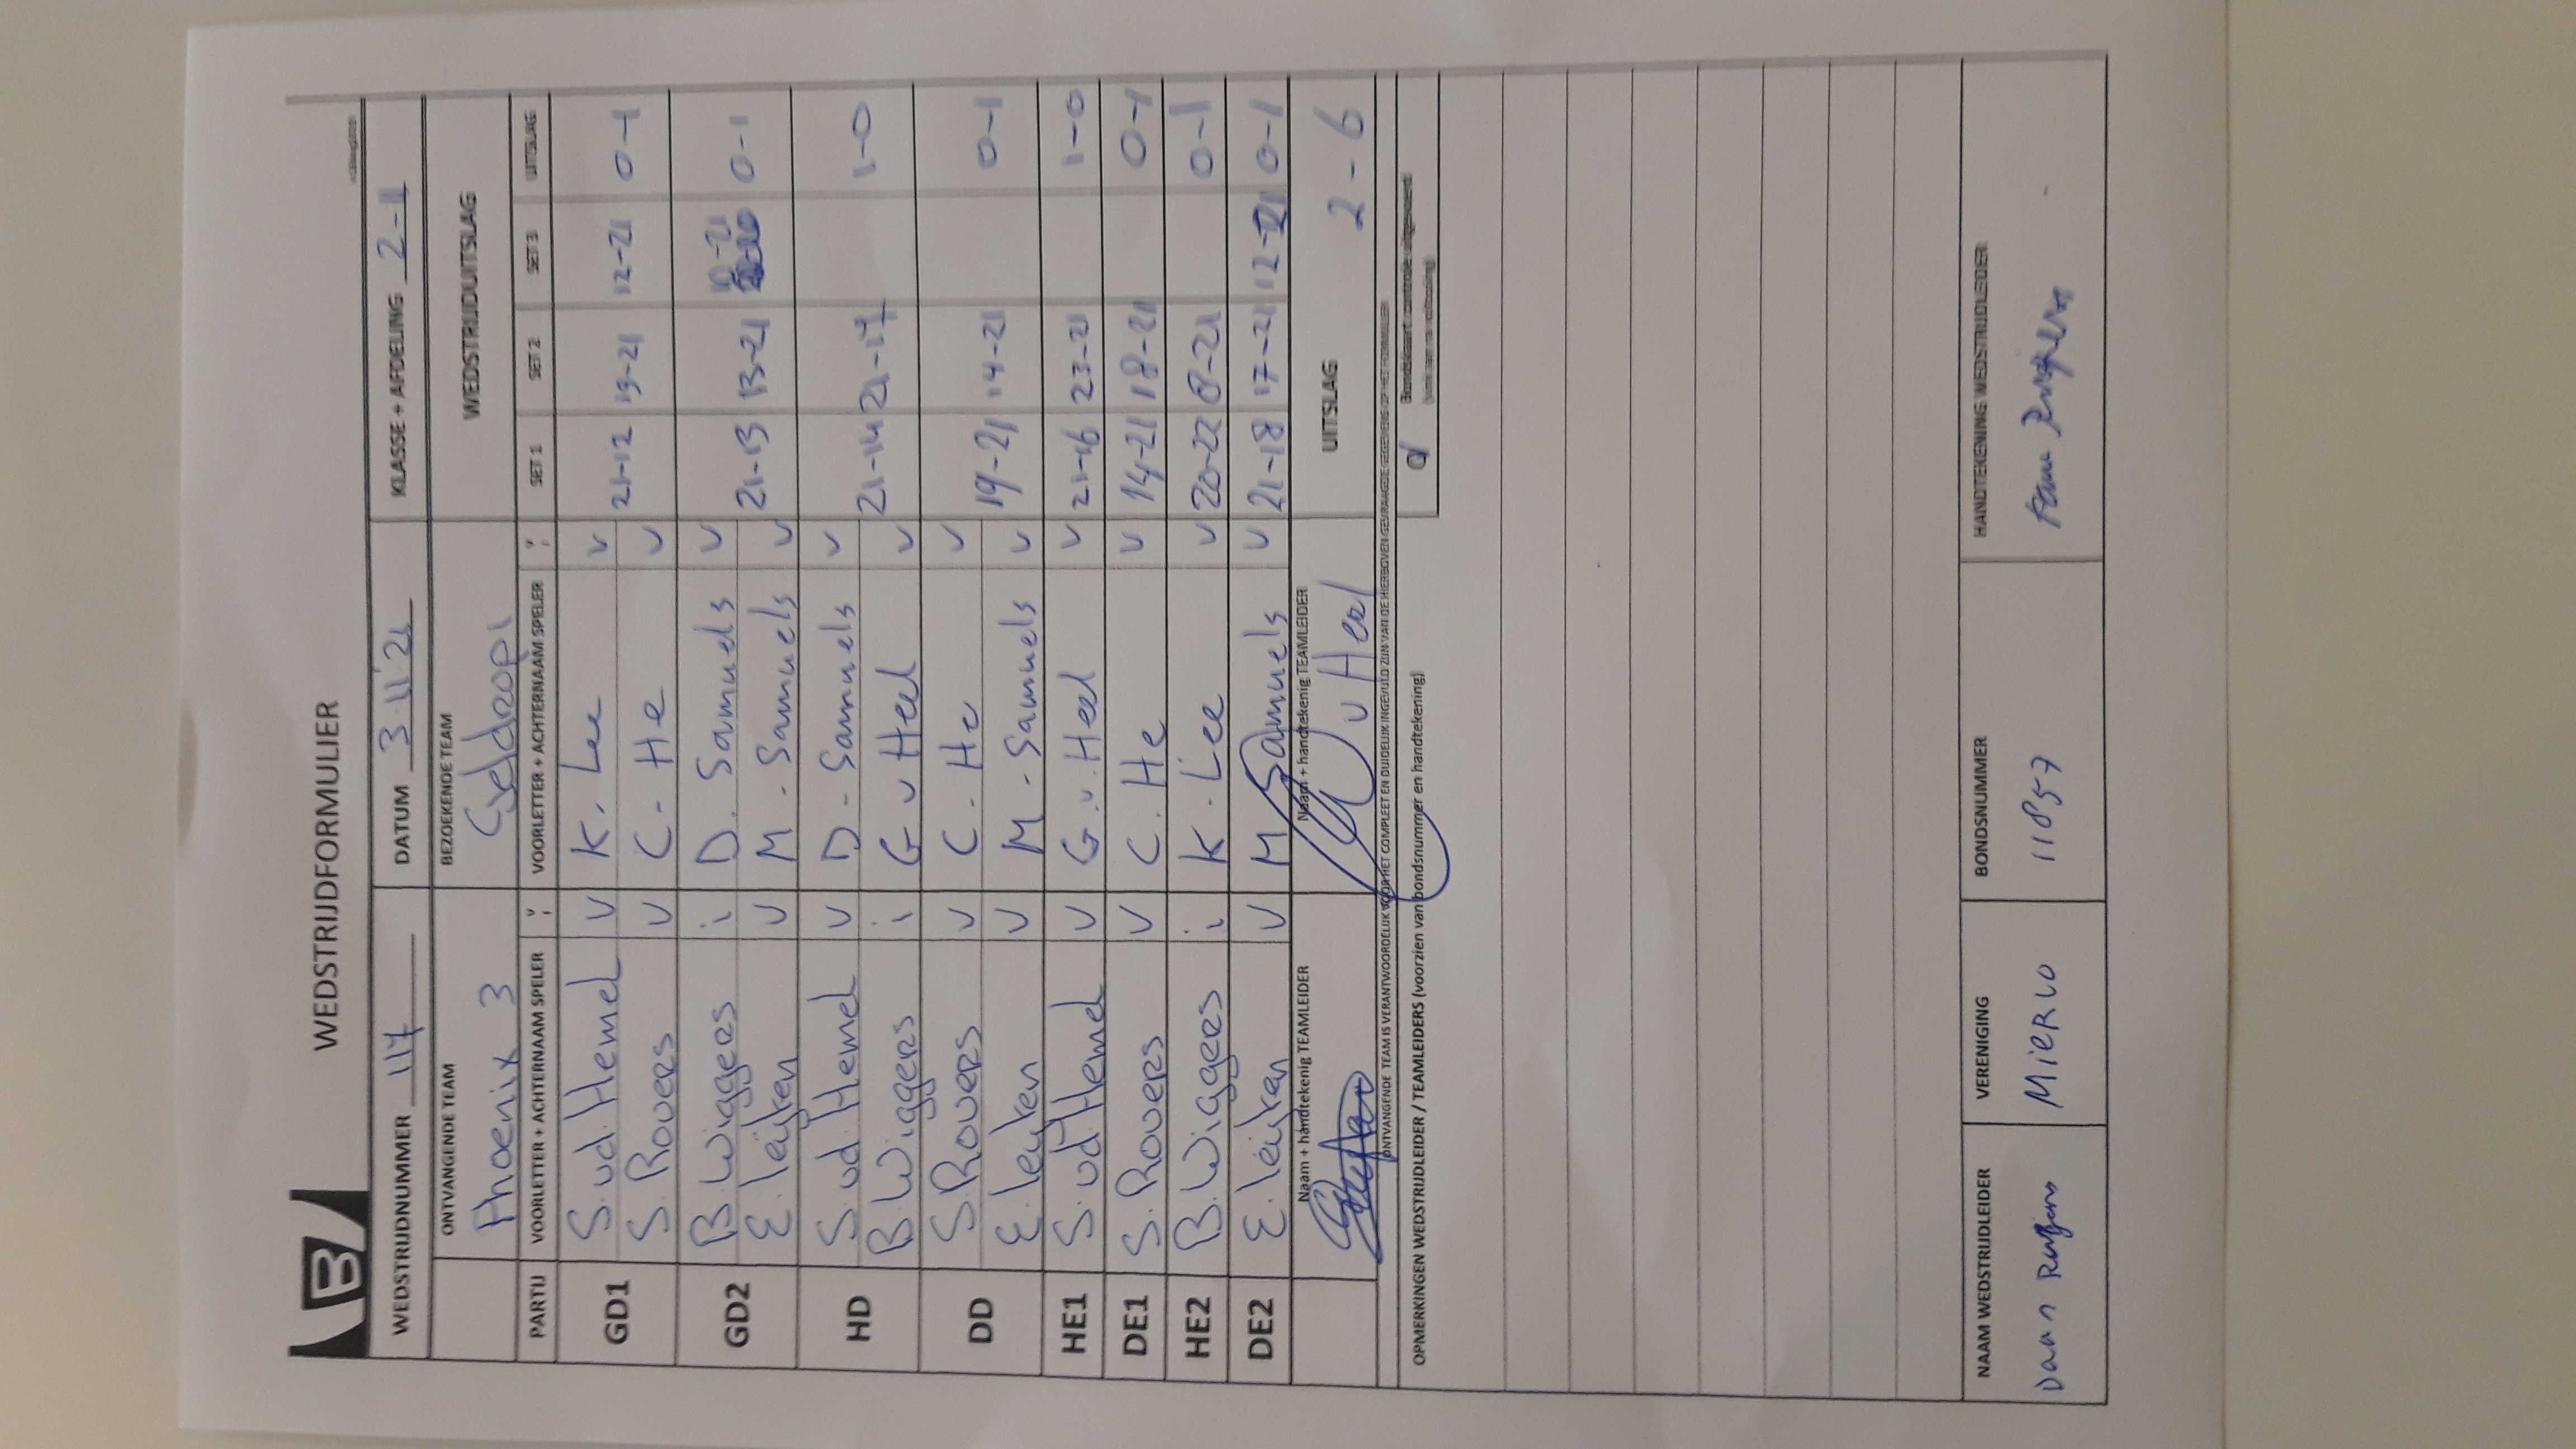 B
WEDSTRIJDFORMULIER
WEDSTRIJDNUMMER 114 DATUM 3.11'21 KLASSE + AFDELING 2-11
ONTVANGENDE TEAM BEZOEKENDE TEAM WEDSTRIJDUITSLAG
Phoenix 3 Geldrop 1
PARTIJ VOORLETTER + ACHTERNAAM SPELER VOORLETTER + ACHTERNAAM SPELER SET 1 SET 2 SET 3 UITSLAG
GD1 S. vd Hemel v K. Lee v
S. Rovers v C. He v 21-12 19-21 12-21 0-1
GD2 B. Wiggers i D. Samuels v 19-21
E. Leijken v M. Samuels v 21-13 13-21 0-1
HD S. vd Hemel v D. Samuels v
B. Wiggers i G v Heel v 21-14 21-17 1-0
DD S. Rovers v C. He v
E. Leijken v M. Samuels v 19-21 14-21 0-1
HE1 S. vd Hemel v G. v. Heel v 21-16 23-21 1-0
DE1 S. Rovers v C. He v 14-21 18-21 0-1
HE2 B. Wiggers i K. Lee v 20-22 8-21 0-1
DE2 E. Leijken v M Samuels v 21-18 17-21 12-21 0-1
Naam + handtekenig TEAMLEIDER Naam + handtekenig TEAMLEIDER UITSLAG 2-6
G v Heel
ONTVANGENDE TEAM IS VERANTWOORDELIJK VOOR HET COMPLEET EN DUIDELIJK INGEVULD ZIJN VAN DE HIERBOVEN GEVRAAGDE GEGEVENS OP HET FORMULIER
OPMERKINGEN WEDSTRIJDLEIDER / TEAMLEIDERS (voorzien van bondsnummer en handtekening) Bondskaart controle uitgevoerd
NAAM WEDSTRIJDLEIDER VERENIGING BONDSNUMMER HANDTEKENING WEDSTRIJDLEIDER
Daan MIERLO 11857